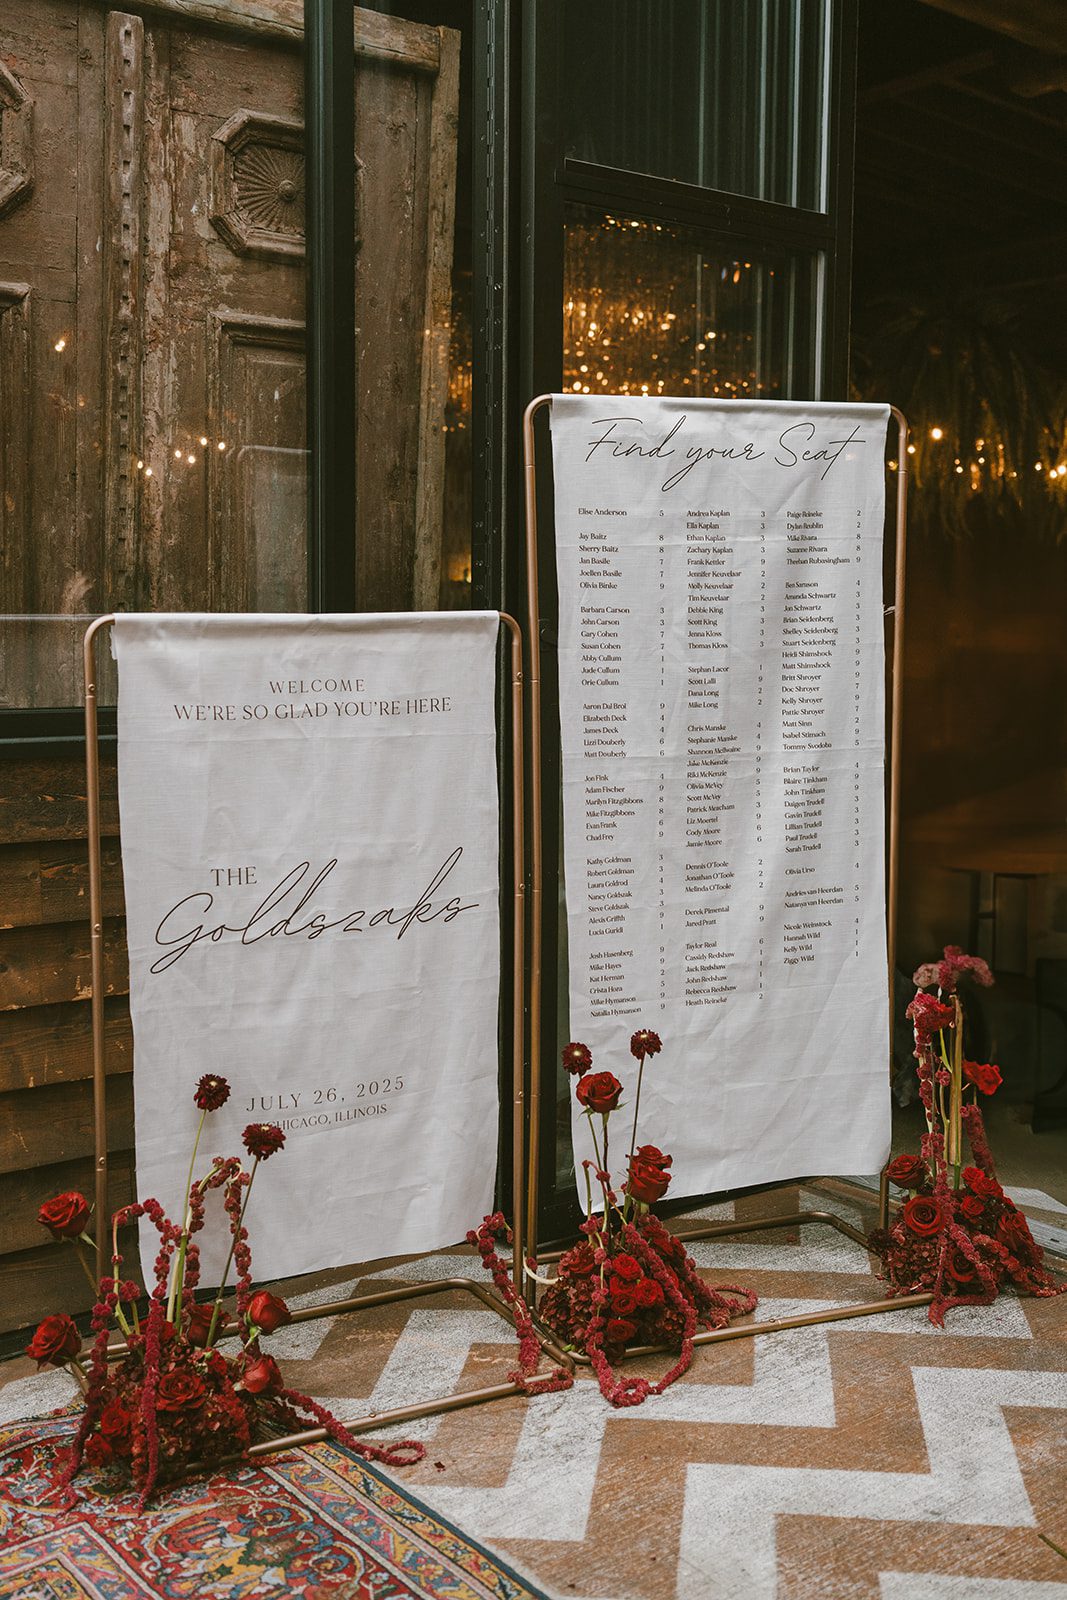 WELCOME
WE'RE SO GLAD YOU'RE HERE
THE
Goldszaks
JULY 26, 2025
CHICAGO, ILLINOIS
Find your Seat
Elise Anderson 5
Jay Baitz 8
Sherry Baitz 8
Jan Basile 7
Joellen Basile 7
Olivia Binke 9
Barbara Carson 3
John Carson 3
Gary Cohen 7
Susan Cohen 7
Abby Cullum 1
Jude Cullum 1
Orie Cullum 1
Aaron Dal Broi 9
Elizabeth Deck 4
James Deck 4
Lizzi Douberly 6
Matt Douberly 6
Jon Fink 4
Adam Fischer 9
Marilyn Fitzgibbons 8
Mike Fitzgibbons 8
Evan Frank 6
Chad Frey 9
Kathy Goldman 3
Robert Goldman 3
Laura Goldrod 4
Nancy Goldszak 3
Steve Goldszak 3
Alexis Griffith 9
Lucia Guridi 1
Josh Hasenberg 9
Mike Hayes 9
Kat Herman 2
Crista Hora 5
Mike Hymanson 9
Natalia Hymanson 9
Andrea Kaplan 3
Ella Kaplan 3
Ethan Kaplan 3
Zachary Kaplan 3
Frank Kettler 9
Jennifer Keuvelaar 2
Molly Keuvelaar 2
Tim Keuvelaar 2
Debbie King 3
Scott King 3
Jenna Kloss 3
Thomas Kloss 3
Stephan Lacor 1
Scott Lalli 9
Dana Long 2
Mike Long 2
Chris Manske 4
Stephanie Manske 4
Shannon McIlwaine 9
Jake McKenzie 9
Riki McKenzie 9
Olivia McVey 5
Scott McVey 5
Patrick Meacham 3
Liz Moertel 9
Cody Moore 6
Jamie Moore 6
Dennis O'Toole 2
Jonathan O'Toole 2
Melinda O'Toole 2
Derek Pimental 9
Jared Pratt 9
Taylor Real 6
Cassidy Redshaw 1
Jack Redshaw 1
John Redshaw 1
Rebecca Redshaw 1
Heath Reineke 2
Paige Reineke 2
Dylan Reublin 2
Mike Rivara 8
Suzanne Rivara 8
Theehan Rubasingham 9
Ben Samson 4
Amanda Schwartz 3
Jan Schwartz 3
Brian Seidenberg 3
Shelley Seidenberg 3
Stuart Seidenberg 3
Heidi Shimshock 9
Matt Shimshock 9
Britt Shroyer 9
Doc Shroyer 7
Kelly Shroyer 9
Pattie Shroyer 7
Matt Sinn 2
Isabel Stimach 9
Tommy Svoboda 5
Brian Taylor 4
Blaire Tinkham 9
John Tinkham 9
Daigen Trudell 3
Gavin Trudell 3
Lillian Trudell 3
Paul Trudell 3
Sarah Trudell 3
Olivia Urso 4
Andries van Heerdan 5
Natanya van Heerdan 5
Nicole Weinstock 4
Hannah Wild 1
Kelly Wild 1
Ziggy Wild 1